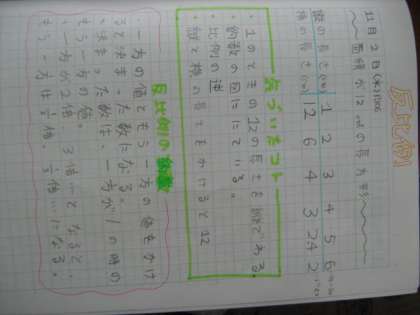 反比例
11月2日(木)
面積が12㎠の長方形
縦の長さ(cm) 1 2 3 4 5 6
横の長さ(cm) 12 6 4 3 2.4 2
気づいたコト
・1のときの12の長さを縦でわる。
・約数の図ににている。
・比例の逆
・縦と横の長さをかけると12
反比例の
・一方の値ともう一方の値をかけ
ると決まった数になる。
・決まった数は、一方が1の時の
もう一方の値。
・一方が2倍、3倍…となると、
もう一方は½倍 ⅓倍…になる。